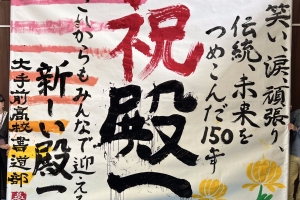 笑い、涙、頑張り、
伝統、未来を
つめこんだ150年
祝殿一
これからもみんなで迎える
新しい殿一
大手前高校書道部